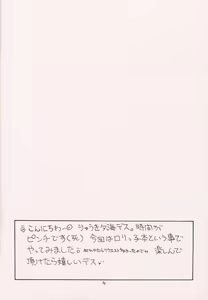 こんにちわー りゅうき夕海デス。時間が
ピンチです(死) 今回はロリっ子本という事で
やってみました 楽しんで
頂けたら嬉しいデス。
4